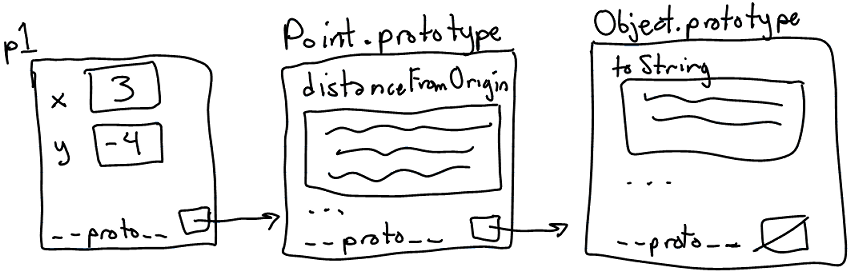 p1
x 3
y -4
--proto--
Point.prototype
distanceFromOrigin
...
--proto--
Object.prototype
toString
...
--proto--